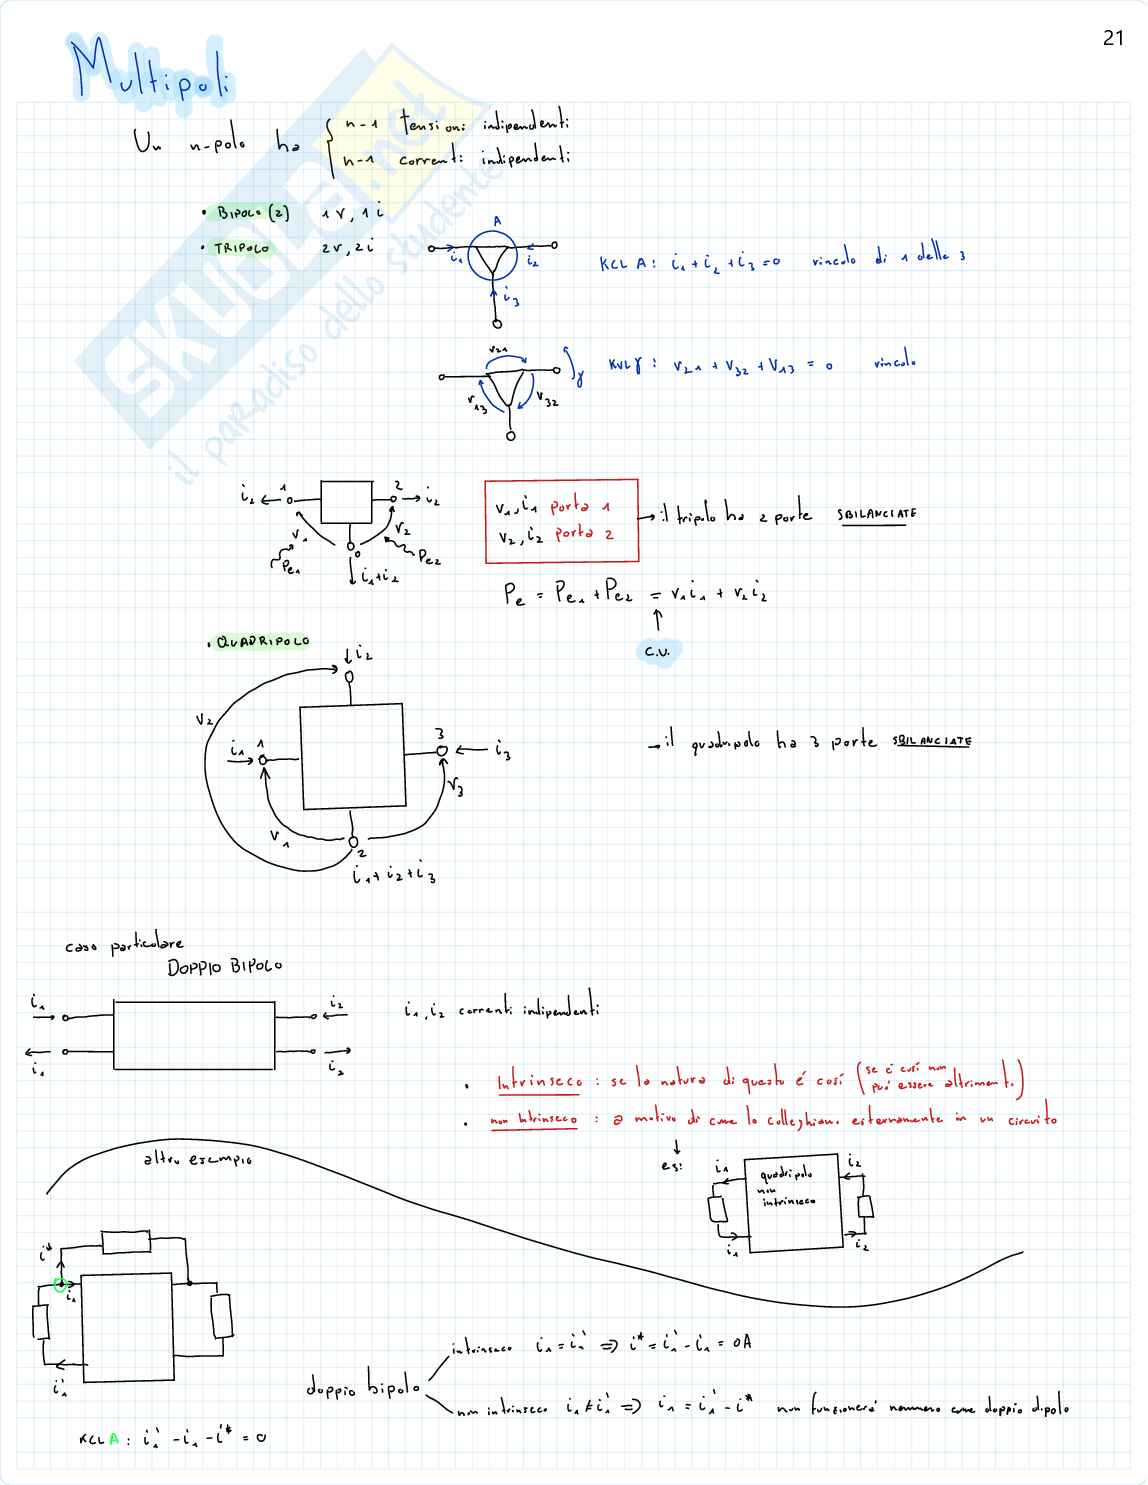 21
Multipoli
Un n-polo ha { n-1 tensioni indipendenti
n-1 correnti indipendenti
• BIPOLO (2) 1v, 1i
• TRIPOLO 2v, 2i
A
i₁ i₂
i₃
KCL A: i₁ + i₂ + i₃ = 0 vincolo di 1 delle 3
v₂₁
v₁₃ v₃₂
γ
KVL γ: v₂₁ + v₃₂ + v₁₃ = 0 vincolo
i₂ 1 2 i₂
v₁ v₂
0
Pe₁ Pe₂
i₁+i₂
v₁, i₁ porta 1
v₂, i₂ porta 2
→ il tripolo ha 2 porte SBILANCIATE
Pe = Pe₁ + Pe₂ = v₁i₁ + v₂i₂
↑
C.U.
• QUADRIPOLO
i₂
v₂
i₁ 1
3 i₃
v₁ v₃
2
i₁+i₂+i₃
→ il quadripolo ha 3 porte SBILANCIATE
caso particolare
DOPPIO BIPOLO
i₁ i₂
i₁ i₂
i₁, i₂ correnti indipendenti
• Intrinseco: se la natura di questo é cosí (se é cosí non può essere altrimenti)
• non Intrinseco: a motivo di come lo colleghiamo esternamente in un circuito
es:
i₁ i₂
quadripolo
non
intrinseco
i₁ i₂
altro esempio
i*
i₁
i₁'
KCL A: i₁' - i₁ - i* = 0
doppio bipolo
intrinseco i₁ = i₁' ⇒ i* = i₁' - i₁ = 0A
non intrinseco i₁ ≠ i₁' ⇒ i₁ = i₁' - i* non funzionerá nemmeno come doppio dipolo
SKUOLA.net
il paradiso dello studente